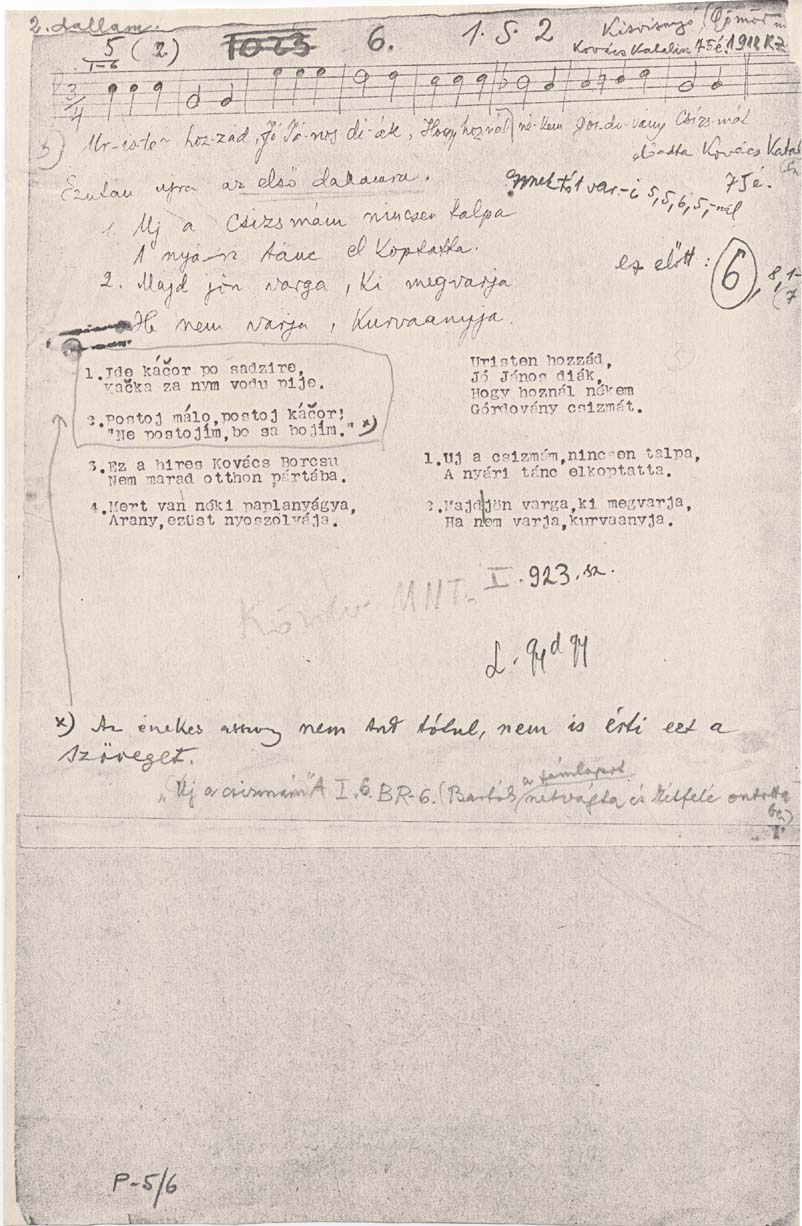 2. dallam.
5 (2)
1-6
1023
6.
1. S. 2
Kisvisnyó (Gömör m
Kovács Katalin 75é. 1912 K.Z.
3/4
Ur-iste-n hoz-zád, Jó Já-nos di-ák, Hogy hoznál nékem Gor-do-vány Csizs-mát
előadta Kovács Katal
75é.
Ezután ujra az első dallamra.
var-i 5,5,6,5,-nál
1. Uj a Csizsmám nincsen talpa
A nyá-ri tánc el koptatta.
ez előtt: 6, 8, 1-
(7
2. Majd jön varga, Ki megvarja
He nem varja, Kurvaanyja.
1. Ide káčor po sadzire,
Kačka za nym vodu pije.
2. Postoj málo, postoj káčor!
"Ne postojím, bo sa bojím." x)
3. Ez a hires Kovács Borcsu
Nem marad otthon pártába.
4. Mert van néki paplanyágya,
Arany, ezüst nyoszolyája.
Uristen hozzád,
Jó János diák,
Hogy hoznál nékem
Górdovány csizmát.
1. Uj a csizmám, nincsen talpa,
A nyári tánc elkoptatta.
2. Majd jön varga, ki megvarja,
Ha nem varja, kurvaanyja.
MNT. I. 923. sz.
x) Az énekes asszony nem tud tótul, nem is érti ezt a
szöveget.
"Uj a csizmám" A I. 6. BR-6. (Bartók a támlapot
és kétfelé osztotta
be)
P-5/6